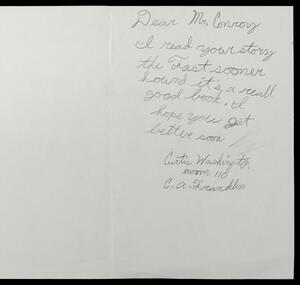 Dear Mr. Conroy
I read your story
the Fast sooner
hound it's a reall
good book. I
hope you get
better soon
Curtis Washington
room 110
C. A. Franklin